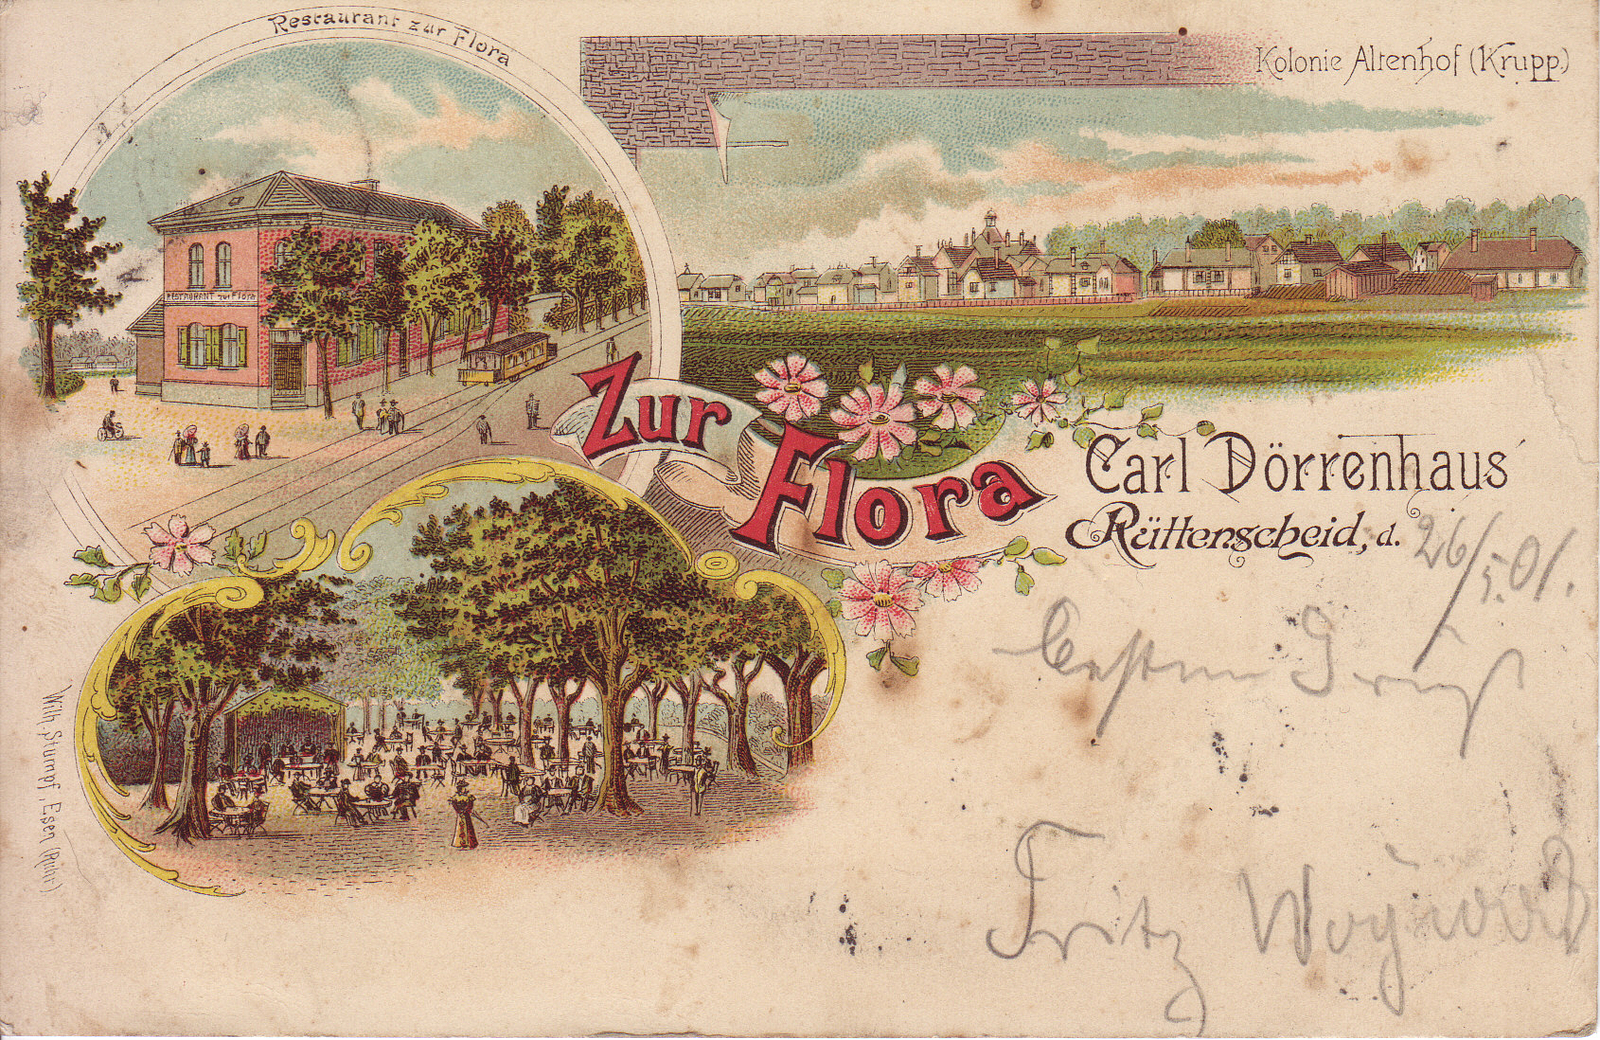 Restaurant zur Flora
Kolonie Altenhof (Krupp.)
RESTAURANT zur Flora
Zur
Flora
Carl Dörrenhaus
Rüttenscheid, d. 26/5.01.
besten Gruß
Fritz
Wilh. Stumpf, Essen (Ruhr)